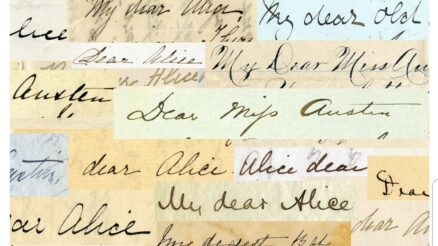 My dear Alice
My dear Old
Alice
Dear Alice
Alice
My Dear Miss Au
Austen
Dear Miss Austen
dear Alice
Alice dear
Dear
My dear Alice
ar Alice
dear A
My dearest